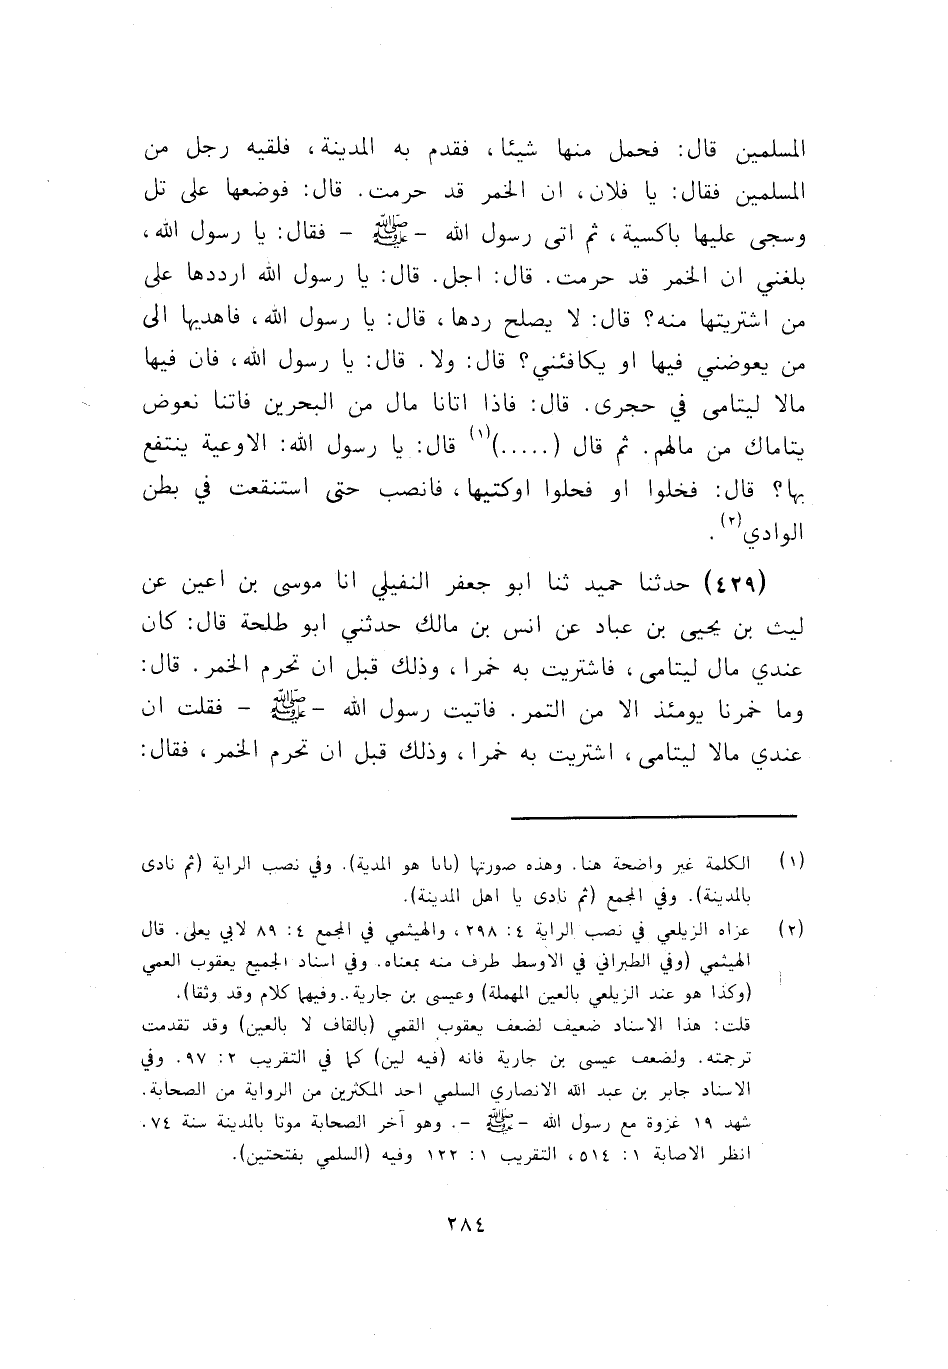 المسلمين قال: فحمل منها شيئا، فقدم به المدينة، فلقيه رجل من
المسلمين فقال: يا فلان، ان الخمر قد حرمت. قال: فوضعها على تل
وسجى عليها باكسية، ثم اتى رسول الله - ﷺ - فقال: يا رسول الله،
بلغني ان الخمر قد حرمت. قال: اجل. قال: يا رسول الله ارددها على
من اشتريتها منه؟ قال: لا يصلح ردها، قال: يا رسول الله، فاهديها الى
من يعوضني فيها او يكافئني؟ قال: ولا. قال: يا رسول الله، فان فيها
مالا ليتامى في حجرى. قال: فاذا اتانا مال من البحرين فاتنا نعوض
يتاماك من مالهم. ثم قال (.....)(١) قال: يا رسول الله: الاوعية ينتفع
بها؟ قال: فخلوا او فحلوا اوكتيها، فانصب حتى استنقعت في بطن
الوادي(٢).
(٤٢٩) حدثنا حميد ثنا ابو جعفر النفيلي انا موسى بن اعين عن
ليث بن يحيى بن عباد عن انس بن مالك حدثني ابو طلحة قال: كان
عندي مال ليتامى، فاشتريت به خمرا، وذلك قبل ان تحرم الخمر. قال:
وما خمرنا يومئذ الا من التمر. فاتيت رسول الله - ﷺ - فقلت ان
عندي مالا ليتامى، اشتريت به خمرا، وذلك قبل ان تحرم الخمر، فقال:
(١) الكلمة غير واضحة هنا. وهذه صورتها (بابا هو المدية). وفي نصب الراية (ثم نادى
بالمدينة). وفي المجمع (ثم نادى يا اهل المدينة).
(٢) عزاه الزيلعي في نصب الراية ٤: ٢٩٨، والهيثمي في المجمع ٤: ٨٩ لابي يعلى. قال
الهيثمي (وفي الطبراني في الاوسط طرف منه بمعناه. وفي اسناد الجميع يعقوب العمي
(وكذا هو عند الزيلعي بالعين المهملة) وعيسى بن جارية.. وفيهما كلام وقد وثقا).
قلت: هذا الاسناد ضعيف لضعف يعقوب القمي (بالقاف لا بالعين) وقد تقدمت
ترجمته. ولضعف عيسى بن جارية فانه (فيه لين) كما في التقريب ٢: ٩٧. وفي
الاسناد جابر بن عبد الله الانصاري السلمي احد المكثرين من الرواية من الصحابة.
شهد ١٩ غزوة مع رسول الله - ﷺ -. وهو آخر الصحابة موتا بالمدينة سنة ٧٤.
انظر الاصابة ١: ٥١٤، التقريب ١: ١٢٢ وفيه (السلمي بفتحتين).
٢٨٤